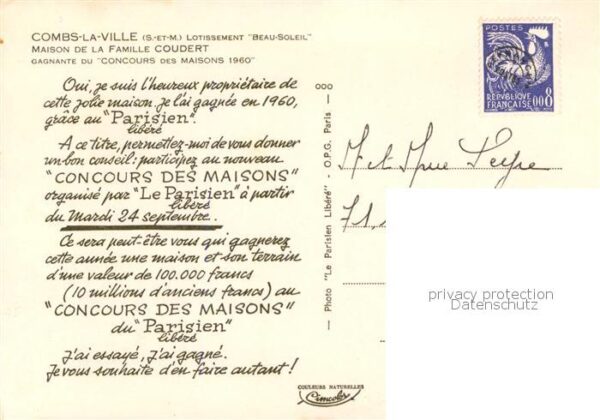 COMBS-LA-VILLE (S.-ET-M.) LOTISSEMENT "BEAU-SOLEIL"
MAISON DE LA FAMILLE COUDERT
GAGNANTE DU "CONCOURS DES MAISONS 1960"
Oui, je suis l'heureux propriétaire de
cette jolie maison. Je l'ai gagnée en 1960,
grâce au "Parisien".
libéré
A ce titre, permettez-moi de vous donner
un bon conseil: participez au nouveau
"CONCOURS DES MAISONS"
organisé par "Le Parisien" à partir
libéré
du Mardi 24 septembre.
Ce sera peut-être vous qui gagnerez
cette année une maison et son terrain
d'une valeur de 100.000 francs
(10 millions d'anciens francs) au
"CONCOURS DES MAISONS"
du "Parisien"
libéré
J'ai essayé, j'ai gagné.
Je vous souhaite d'en faire autant!
COULEURS NATURELLES
Cimcolor
— Photo "Le Parisien Libéré" - O.P.G. Paris —
POSTES
REPUBLIQUE
FRANÇAISE 0008
M et Mme
71,
privacy protection
Datenschutz